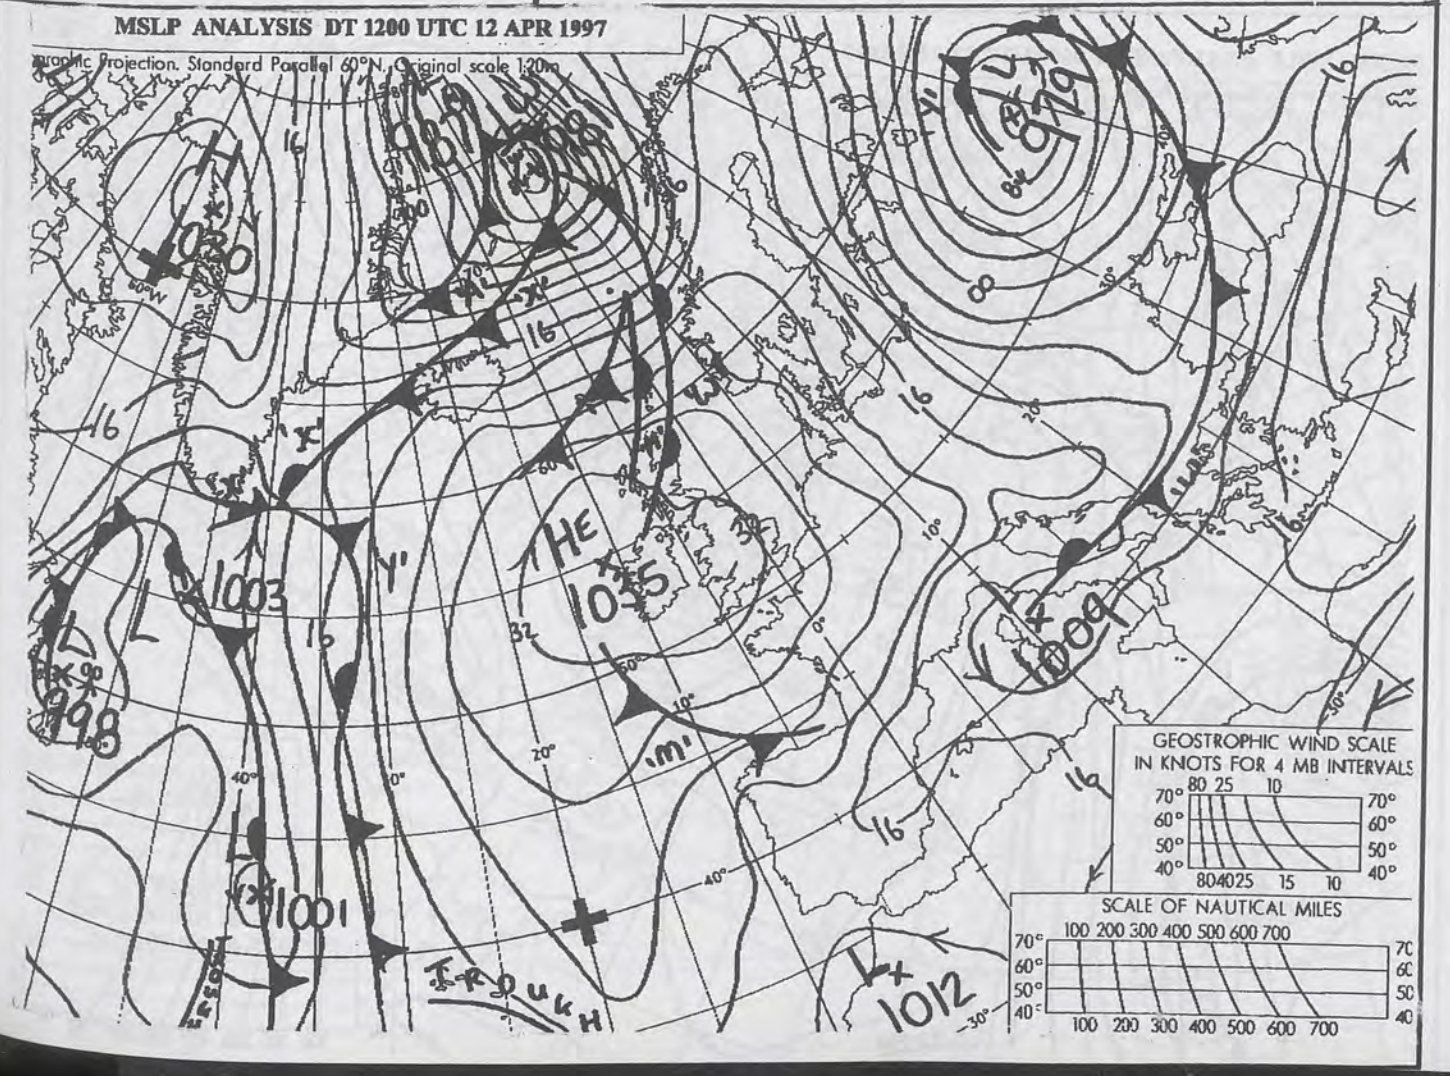 MSLP ANALYSIS DT 1200 UTC 12 APR 1997
graphic Projection. Standard Parallel 60°N. Original scale 1:20m
H
1030
60°W
16
987
L
979
'Y'
16
16
00
70°
'X'
16
8
16
20°
30°
16
'X'
'X'
60°
'M'
HE
1035
32
32
10°
16
L
1003
'Y'
16
L
998
50°
0°
1009
10°
'M'
20°
40°
16
16
30°
L
1001
40°
L
1012
30°
GEOSTROPHIC WIND SCALE
IN KNOTS FOR 4 MB INTERVALS
80 25 10
70° 70°
60° 60°
50° 50°
40° 40°
80 40 25 15 10
SCALE OF NAUTICAL MILES
100 200 300 400 500 600 700
70° 70
60° 60
50° 50
40° 40
100 200 300 400 500 600 700